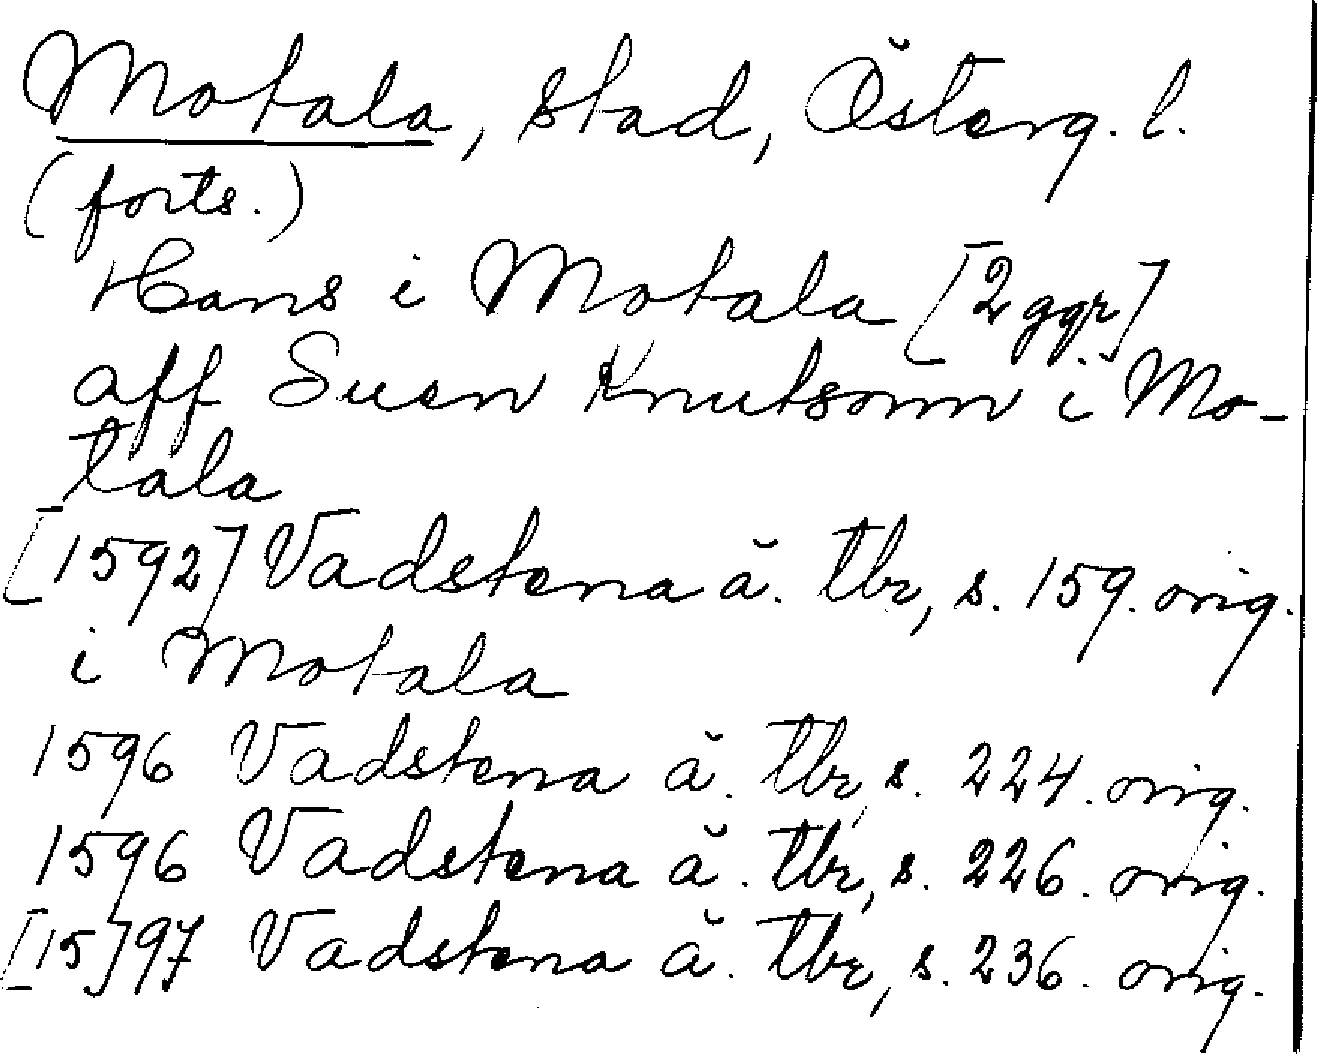 Motala, stad, Österg. l.
(forts.)
Hans i Motala [2 ggr]
aff Suen Knutsonn i Mo-
tala
[1592] Vadstena ä. tbr, s. 159. orig.
i Motala
1596 Vadstena ä. tbr, s. 224. orig.
1596 Vadstena ä. tbr, s. 226. orig.
[15]97 Vadstena ä. tbr, s. 236. orig.